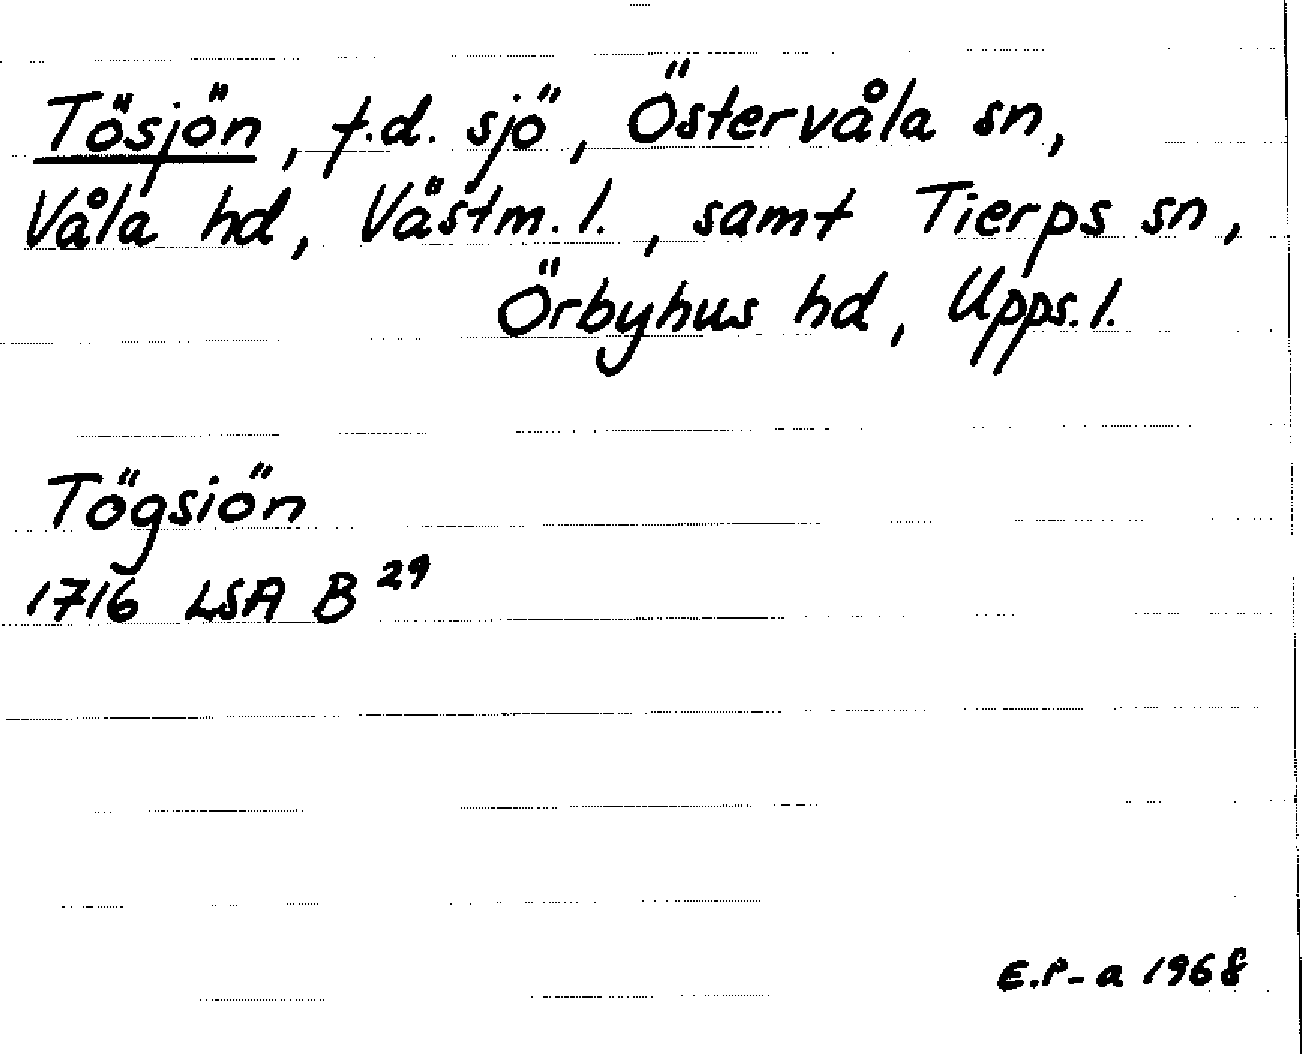 Tösjön, f.d. sjö, Östervåla sn,
Våla hd, Västm.l., samt Tierps sn,
Örbyhus hd, Upps.l.
Tögsiön
1716 LSA B 29
E.P-a 1968